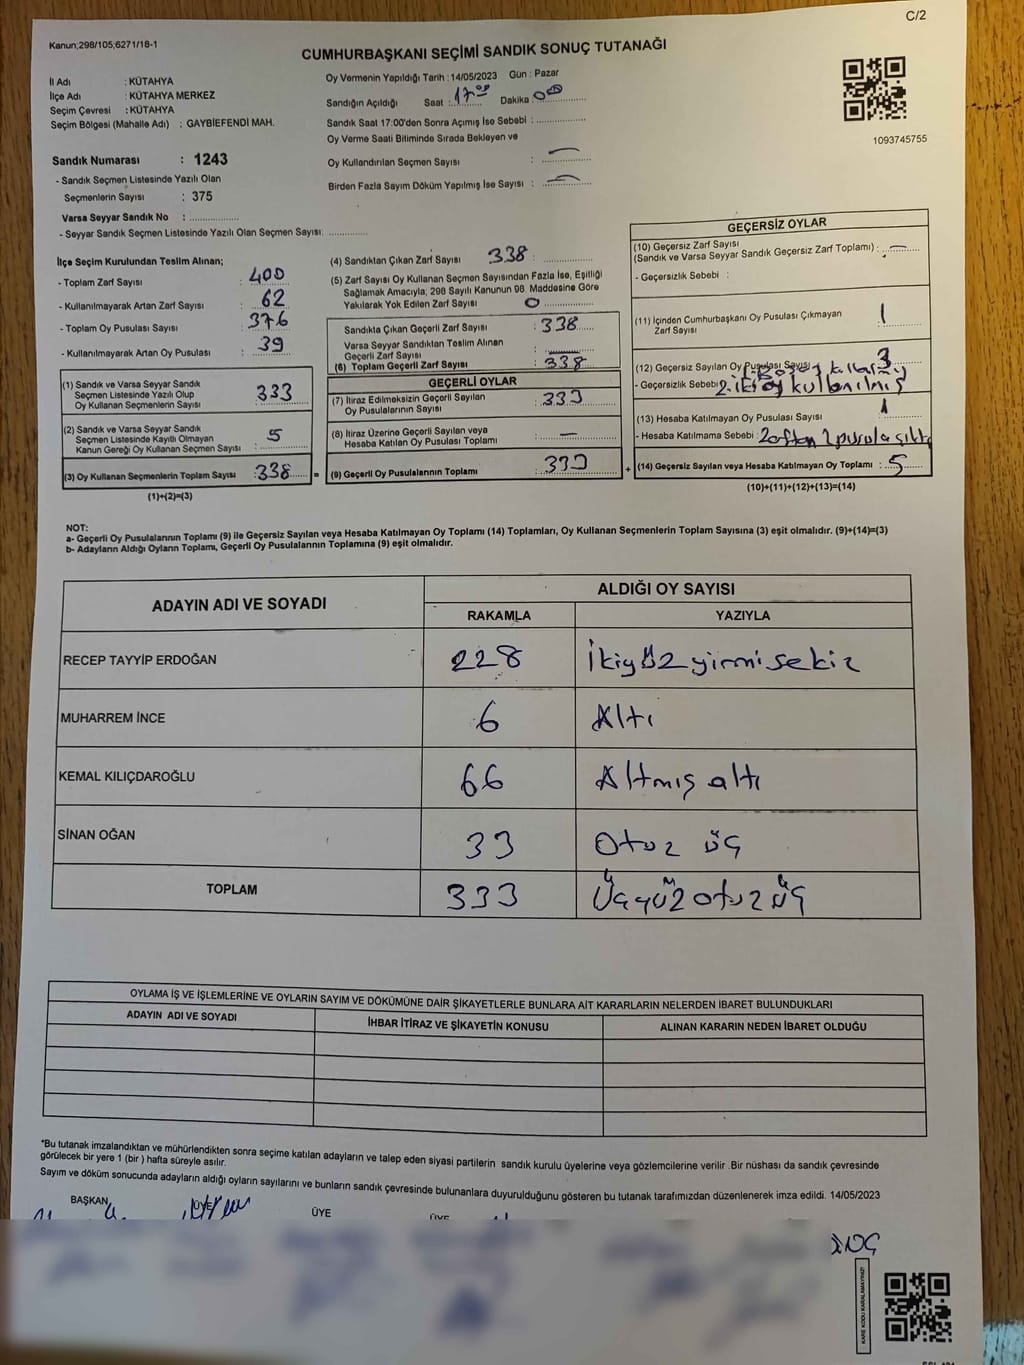 C/2
Kanun;298/105;6271/18-1
CUMHURBAŞKANI SEÇİMİ SANDIK SONUÇ TUTANAĞI
İl Adı : KÜTAHYA
İlçe Adı : KÜTAHYA MERKEZ
Seçim Çevresi : KÜTAHYA
Seçim Bölgesi (Mahalle Adı) : GAYBİEFENDİ MAH.
Oy Vermenin Yapıldığı Tarih : 14/05/2023 Gün : Pazar
Sandığın Açıldığı Saat : 17:00 Dakika : 00
Sandık Saat 17:00'den Sonra Açımış İse Sebebi :
Oy Verme Saati Bitiminde Sırada Bekleyen ve
Oy Kullandırılan Seçmen Sayısı : —
Birden Fazla Sayım Döküm Yapılmış İse Sayısı : —
1093745755
Sandık Numarası : 1243
- Sandık Seçmen Listesinde Yazılı Olan
Seçmenlerin Sayısı : 375
Varsa Seyyar Sandık No :
- Seyyar Sandık Seçmen Listesinde Yazılı Olan Seçmen Sayısı:
İlçe Seçim Kurulundan Teslim Alınan;
- Toplam Zarf Sayısı : 400
- Kullanılmayarak Artan Zarf Sayısı : 62
- Toplam Oy Pusulası Sayısı : 376
- Kullanılmayarak Artan Oy Pusulası : 39
(1) Sandık ve Varsa Seyyar Sandık
Seçmen Listesinde Yazılı Olup
Oy Kullanan Seçmenlerin Sayısı : 333
(2) Sandık ve Varsa Seyyar Sandık
Seçmen Listesinde Kayıtlı Olmayan
Kanun Gereği Oy Kullanan Seçmen Sayısı : 5
(3) Oy Kullanan Seçmenlerin Toplam Sayısı : 338 =
(1)+(2)=(3)
(4) Sandıktan Çıkan Zarf Sayısı : 338
(5) Zarf Sayısı Oy Kullanan Seçmen Sayısından Fazla İse, Eşitliği
Sağlamak Amacıyla, 298 Sayılı Kanunun 98. Maddesine Göre
Yakılarak Yok Edilen Zarf Sayısı : 0
Sandıkta Çıkan Geçerli Zarf Sayısı : 338
Varsa Seyyar Sandıktan Teslim Alınan
Geçerli Zarf Sayısı :
(6) Toplam Geçerli Zarf Sayısı : 338
GEÇERLİ OYLAR
(7) İtiraz Edilmeksizin Geçerli Sayılan
Oy Pusulalarının Sayısı : 333
(8) İtiraz Üzerine Geçerli Sayılan veya
Hesaba Katılan Oy Pusulası Toplamı : —
(9) Geçerli Oy Pusulalarının Toplamı : 333 +
GEÇERSİZ OYLAR
(10) Geçersiz Zarf Sayısı
(Sandık ve Varsa Seyyar Sandık Geçersiz Zarf Toplamı) : —
- Geçersizlik Sebebi :
(11) İçinden Cumhurbaşkanı Oy Pusulası Çıkmayan
Zarf Sayısı 1
(12) Geçersiz Sayılan Oy Pusulası Sayısı 3
- Geçersizlik Sebebi 2 iki oy kullanılmış
(13) Hesaba Katılmayan Oy Pusulası Sayısı 1
- Hesaba Katılmama Sebebi : Zarftan 2 pusula çıktı
(14) Geçersiz Sayılan veya Hesaba Katılmayan Oy Toplamı : 5
(10)+(11)+(12)+(13)=(14)
NOT:
a- Geçerli Oy Pusulalarının Toplamı (9) ile Geçersiz Sayılan veya Hesaba Katılmayan Oy Toplamı (14) Toplamları, Oy Kullanan Seçmenlerin Toplam Sayısına (3) eşit olmalıdır. (9)+(14)=(3)
b- Adayların Aldığı Oyların Toplamı, Geçerli Oy Pusulalarının Toplamına (9) eşit olmalıdır.
ADAYIN ADI VE SOYADI
ALDIĞI OY SAYISI
RAKAMLA YAZIYLA
RECEP TAYYİP ERDOĞAN 228 İkiyüz yirmi sekiz
MUHARREM İNCE 6 Altı
KEMAL KILIÇDAROĞLU 66 Altmış altı
SİNAN OĞAN 33 Otuz üç
TOPLAM 333 Üçyüz otuz üç
OYLAMA İŞ VE İŞLEMLERİNE VE OYLARIN SAYIM VE DÖKÜMÜNE DAİR ŞİKAYETLERLE BUNLARA AİT KARARLARIN NELERDEN İBARET BULUNDUKLARI
ADAYIN ADI VE SOYADI İHBAR İTİRAZ VE ŞİKAYETİN KONUSU ALINAN KARARIN NEDEN İBARET OLDUĞU
*Bu tutanak imzalandıktan ve mühürlendikten sonra seçime katılan adayların ve talep eden siyasi partilerin sandık kurulu üyelerine veya gözlemcilerine verilir .Bir nüshası da sandık çevresinde
görülecek bir yere 1 (bir ) hafta süreyle asılır.
Sayım ve döküm sonucunda adayların aldığı oyların sayılarını ve bunların sandık çevresinde bulunanlara duyurulduğunu gösteren bu tutanak tarafımızdan düzenlenerek imza edildi. 14/05/2023
BAŞKAN ÜYE ÜYE ÜYE
KARE KODU KARALAMAYINIZ!